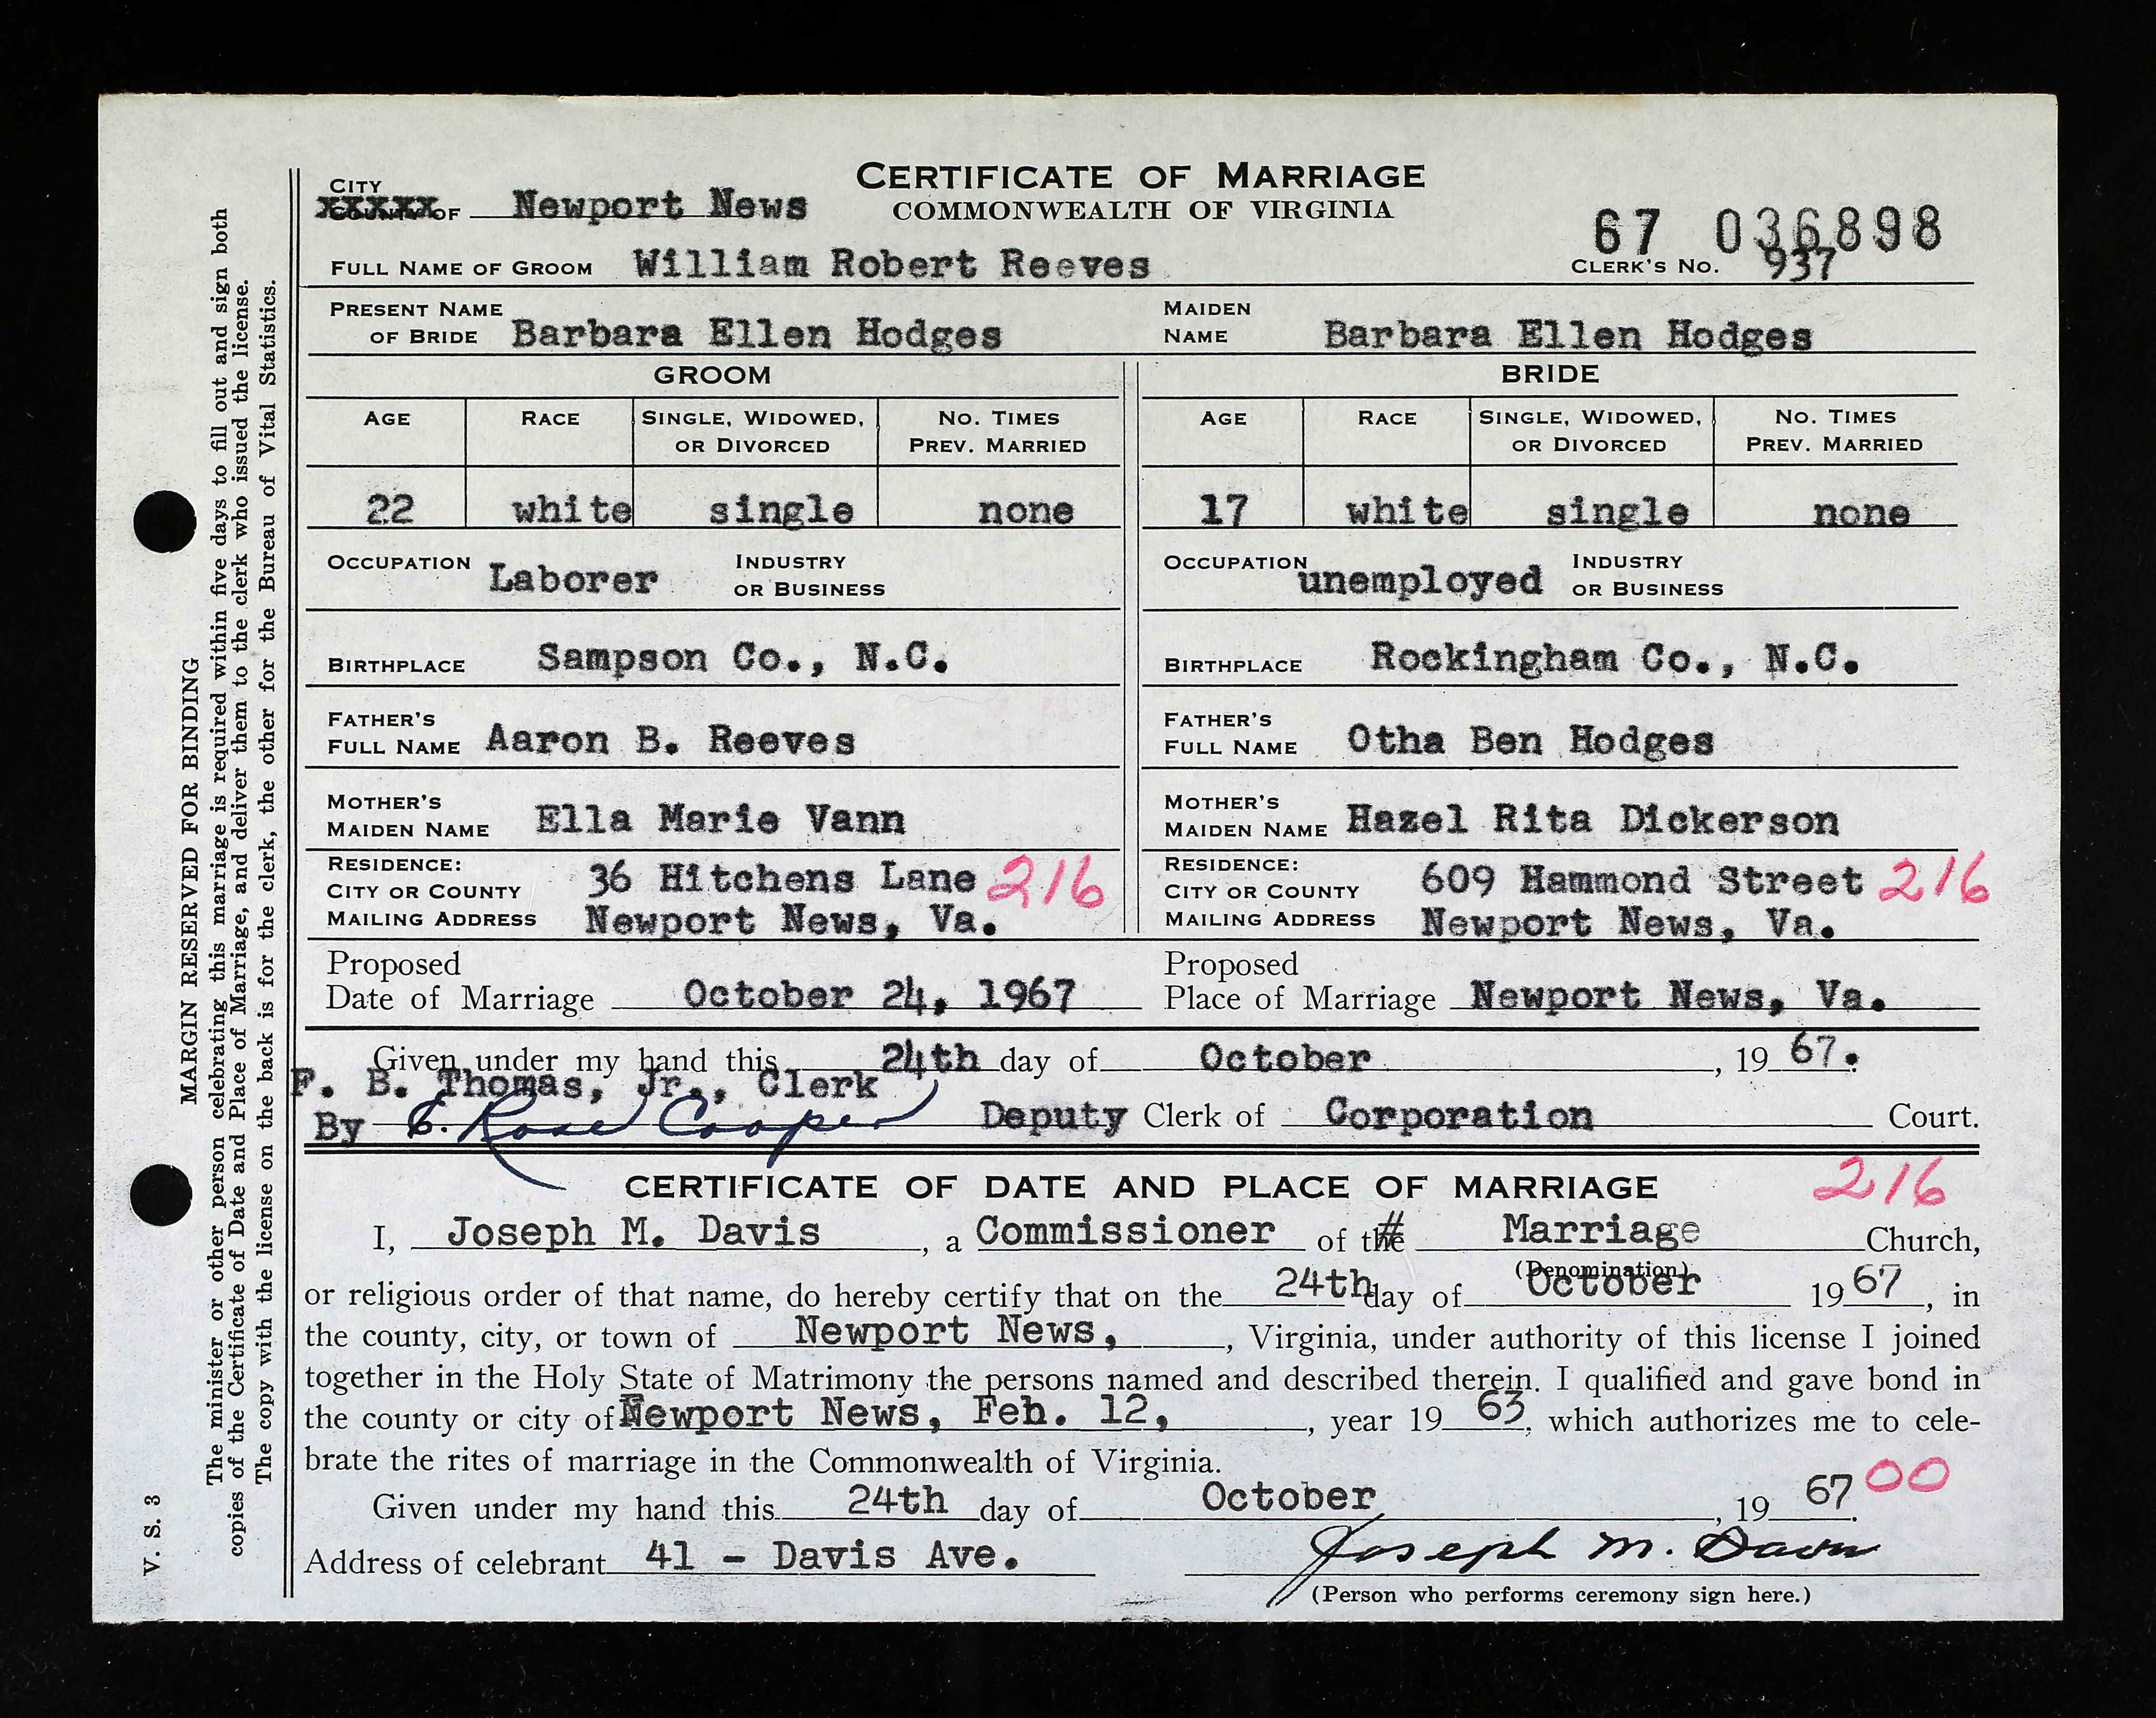 CERTIFICATE OF MARRIAGE
COMMONWEALTH OF VIRGINIA
CITY
COUNTY OF Newport News
67 036898
FULL NAME OF GROOM William Robert Reeves CLERK'S NO. 937
PRESENT NAME OF BRIDE Barbara Ellen Hodges MAIDEN NAME Barbara Ellen Hodges
GROOM BRIDE
AGE RACE SINGLE, WIDOWED, OR DIVORCED NO. TIMES PREV. MARRIED AGE RACE SINGLE, WIDOWED, OR DIVORCED NO. TIMES PREV. MARRIED
22 white single none 17 white single none
OCCUPATION Laborer INDUSTRY OR BUSINESS OCCUPATION unemployed INDUSTRY OR BUSINESS
BIRTHPLACE Sampson Co., N.C. BIRTHPLACE Rockingham Co., N.C.
FATHER'S FULL NAME Aaron B. Reeves FATHER'S FULL NAME Otha Ben Hodges
MOTHER'S MAIDEN NAME Ella Marie Vann MOTHER'S MAIDEN NAME Hazel Rita Dickerson
RESIDENCE: RESIDENCE:
CITY OR COUNTY 36 Hitchens Lane 216 CITY OR COUNTY 609 Hammond Street 216
MAILING ADDRESS Newport News, Va. MAILING ADDRESS Newport News, Va.
Proposed Date of Marriage October 24, 1967 Proposed Place of Marriage Newport News, Va.
Given under my hand this 24th day of October, 19 67.
F. B. Thomas, Jr., Clerk
By E. Rose Cooper Deputy Clerk of Corporation Court.
CERTIFICATE OF DATE AND PLACE OF MARRIAGE 216
I, Joseph M. Davis, a Commissioner of the # Marriage Church,
(Denomination)
or religious order of that name, do hereby certify that on the 24th day of October 19 67, in
the county, city, or town of Newport News, , Virginia, under authority of this license I joined
together in the Holy State of Matrimony the persons named and described therein. I qualified and gave bond in
the county or city of Newport News, Feb. 12, , year 19 63, which authorizes me to cele-
brate the rites of marriage in the Commonwealth of Virginia.
00
Given under my hand this 24th day of October, 19 67.
Address of celebrant 41 - Davis Ave. Joseph M. Davis
(Person who performs ceremony sign here.)
MARGIN RESERVED FOR BINDING
The minister or other person celebrating this marriage is required within five days to fill out and sign both
copies of the Certificate of Date and Place of Marriage, and deliver them to the clerk who issued the license.
The copy with the license on the back is for the clerk, the other for the Bureau of Vital Statistics.
V. S. 3